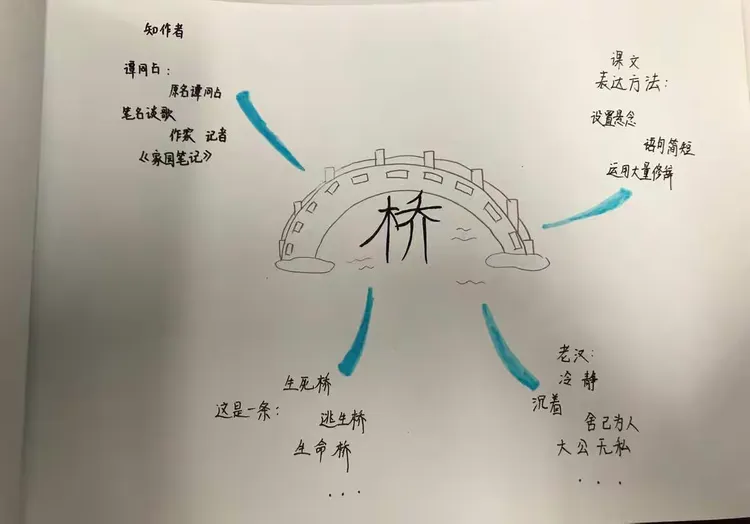 知作者
谭同占：
原名谭同占
笔名谈歌
作家 记者
《家国笔记》
课文
表达方法：
设置悬念
语句简短
运用大量修辞
桥
生死桥
这是一条：
逃生桥
生命桥
...
老汉：
冷静
沉着
舍己为人
大公无私
...